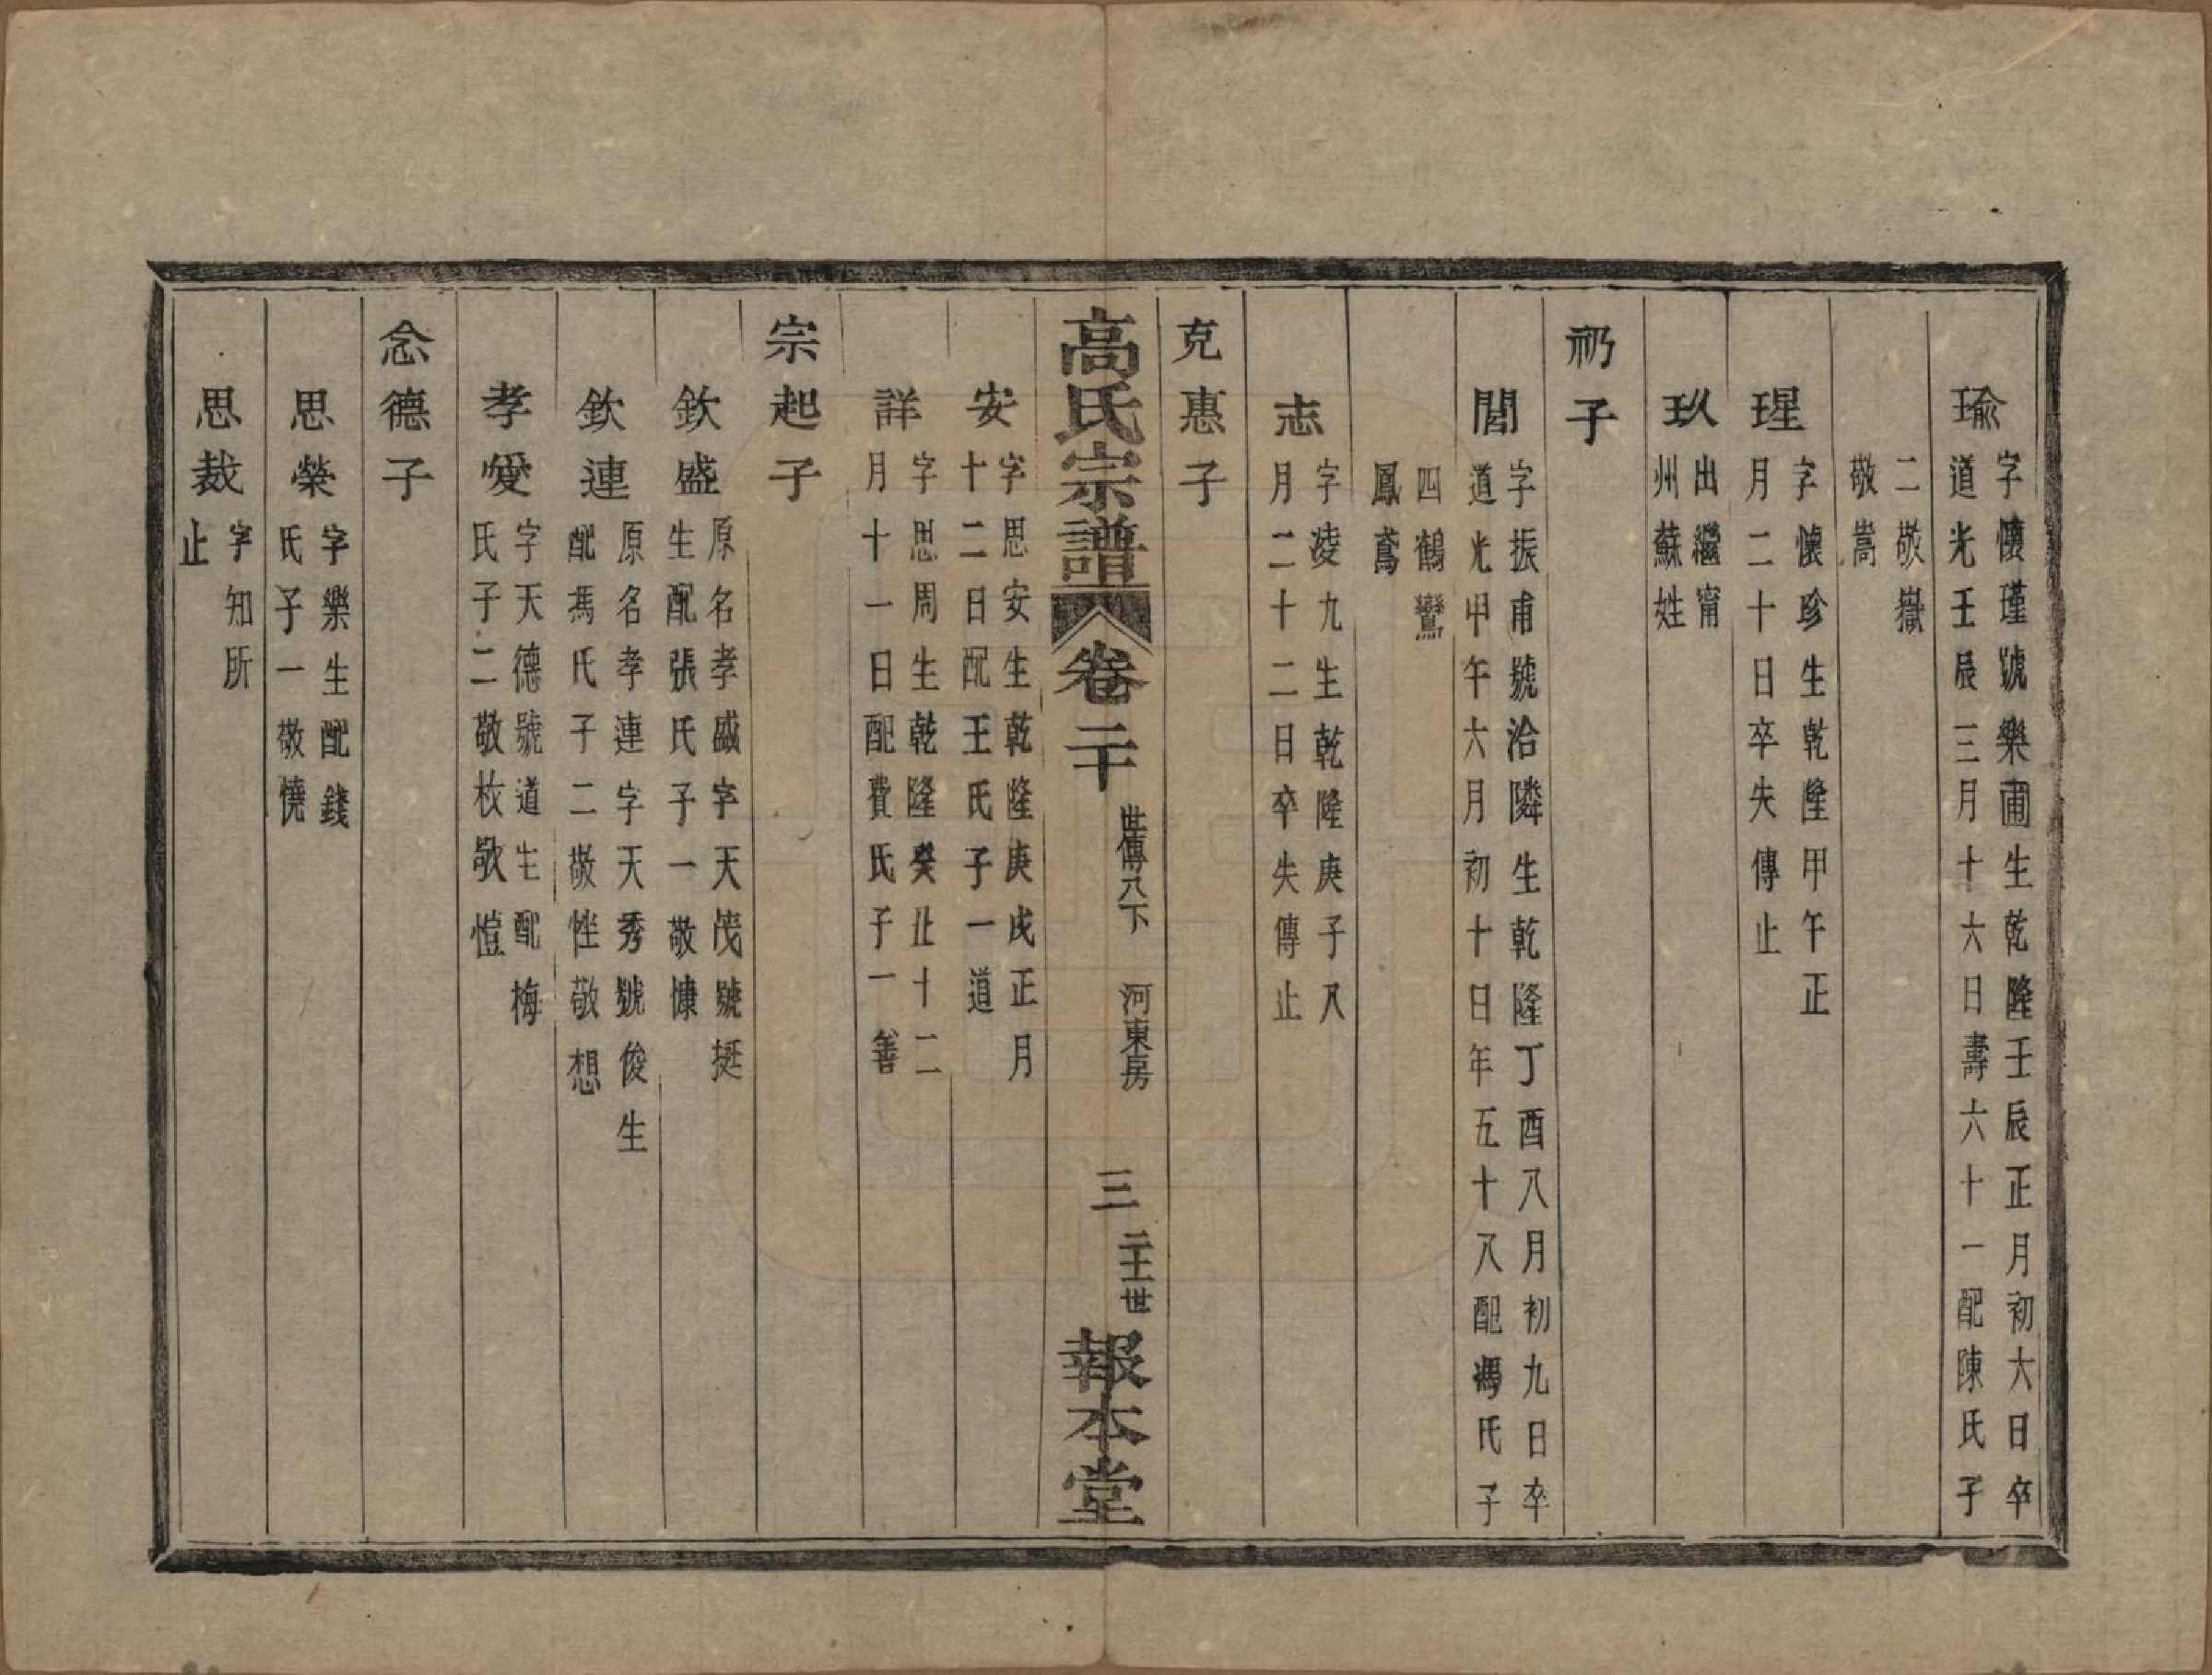 瑜
字懷瑾號樂莆生乾隆壬辰正月初六日卒
道光壬辰三月十六日壽六十一配陳氏子
二敬嶽
敬嵩
瑆
字懷珍生乾隆甲午正
月二十日卒失傳止
玖
出繼甯
州蘇姓
礽子
閭
字振甫號洽隣生乾隆丁酉八月初九日卒
道光甲午六月初十日年五十八配馮氏子
四鶴鸞
鳳鳶
志
字凌九生乾隆庚子八
月二十二日卒失傳止
克惠子
高氏宗譜
卷二十
世傳八下
河東房
三
二十一世
報本堂
安
字思安生乾隆庚戌正月
十二日配王氏子一道
詳
字思周生乾隆癸丑十二
月十一日配費氏子一善
宗起子
欽盛
原名孝盛字天茂號挺
生配張氏子一敬慷
欽連
原名孝連字天秀號俊生
配馮氏子二敬性敬想
孝愛
字天德號道生配梅
氏子二敬枚敬愷
念德子
思榮
字樂生配錢
氏子一敬憢
思裁
字知所
止